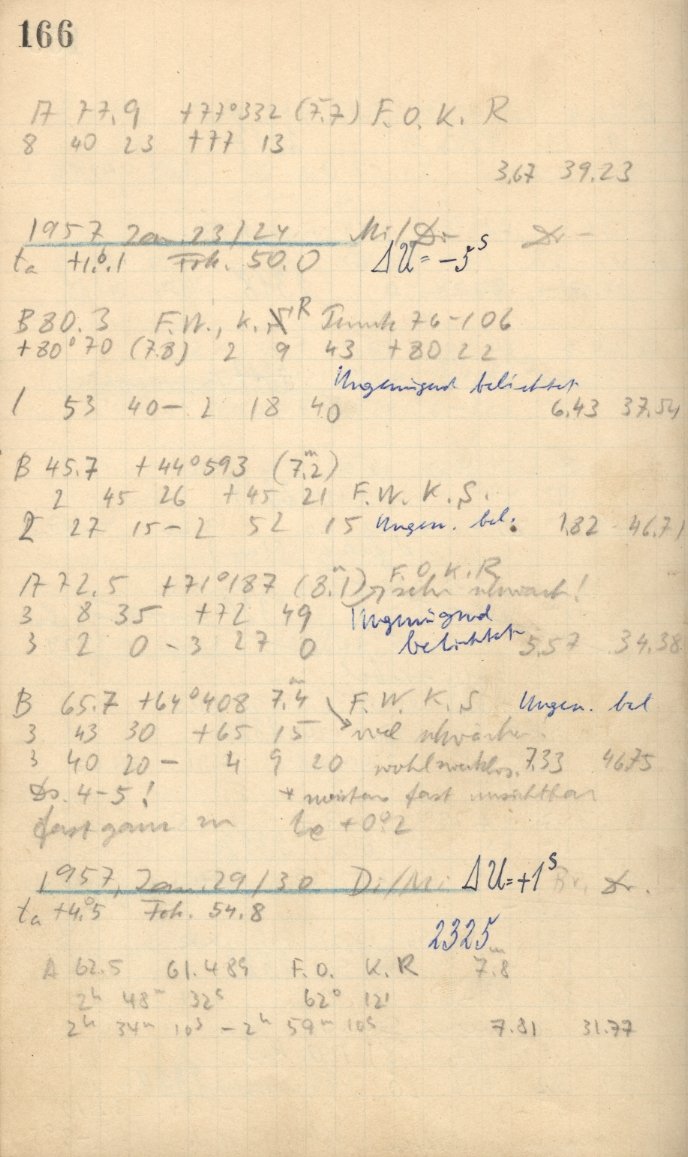 166
A 77.9 +77°332 (7.7) F.O. K. R
8 40 23 +77 13
3,67 39.23
1957, Jan. 23/24 Mi/Do
ta +1.°1 Fok. 50.0 ΔU = -5ˢ
B 80.3 F.W., K. R 76-106
+80°70 (7.8) 2 9 43 +80 22
Ungenügend belichtet
1 53 40 - 2 18 40 6.43 37.54
B 45.7 +44°593 (7.ᵐ2)
2 45 26 +45 21 F.W. K.S.
2 27 15 - 2 52 15 Ungen. bel. 1,82 46.71
A 72.5 +71°187 (8.ᵐ1) F.O. K. R
sehr schwach!
3 8 35 +72 49 Ungenügend
3 2 0 - 3 27 0 belichtet 5,57 34.38
B 65.7 +64°408 7.ᵐ4 F.W. K.S Ungen. bel
3 43 30 +65 15 viel schwächer
3 40 20 - 4 9 20 wohl zwecklos. 7.33 46.75
Ds. 4-5! * meistens fast unsichtbar
fast ganz zu te +0.°2
1957, Jan. 29/30 Di/Mi ΔU = +1ˢ Br, Dr.
ta +4.°5 Fok. 54.8
2325
A 62.5 61.489 F.O. K.R 7.ᵐ8
2ʰ 48ᵐ 32ˢ 62° 12'
2ʰ 34ᵐ 10ˢ - 2ʰ 59ᵐ 10ˢ 7.81 31.77